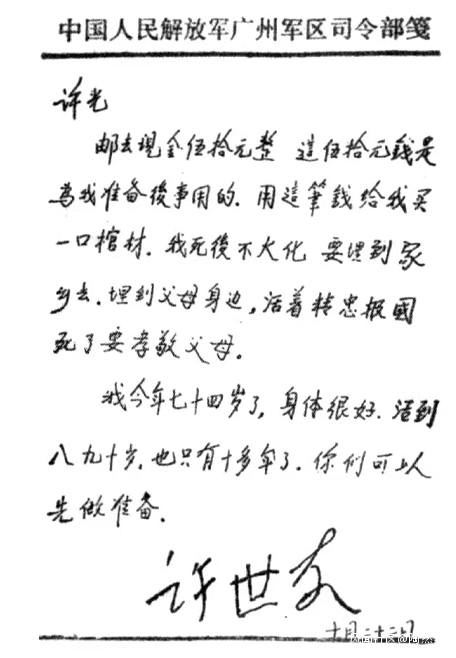 中国人民解放军广州军区司令部笺
许光
邮去现金伍拾元整 這伍拾元錢是
為我准备後事用的.用這筆錢给我买
一口棺材.我死後不火化 要埋到家
乡去.埋到父母身边,活着精忠报國
死了要孝敬父母。
我今年七十四岁了,身体很好.活到
八九十岁.也只有十多年了.你们可以
先做准备.
许世友
十月二十二日